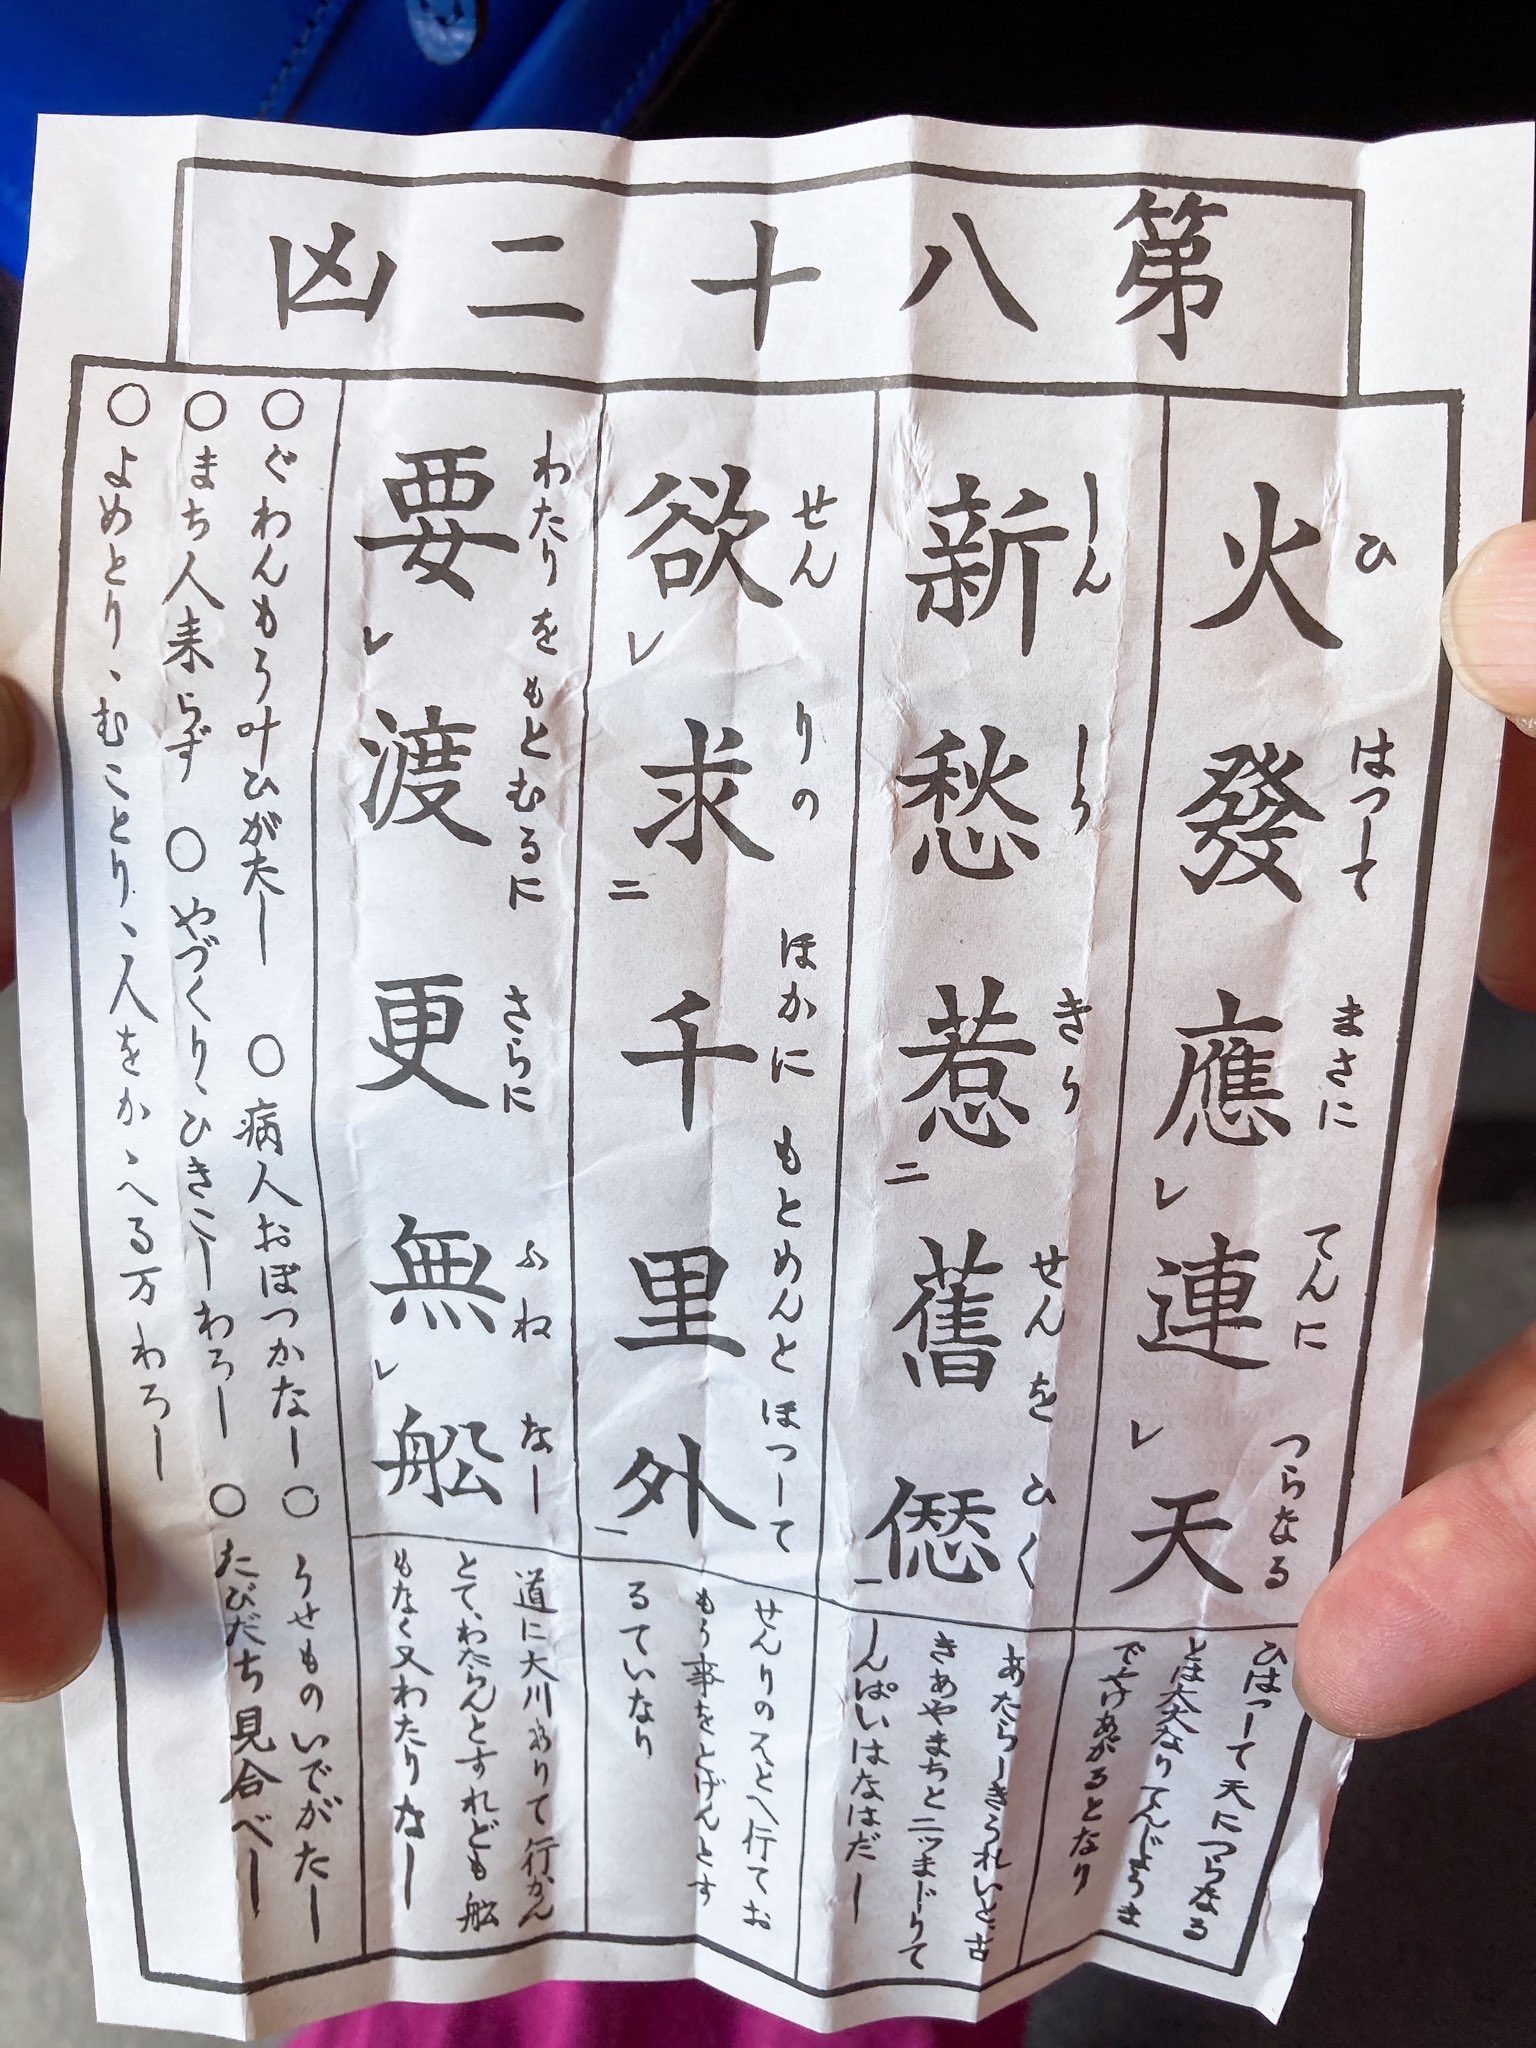 第八十二凶
火發應レ連レ天
ひ はつして まさに てんに つらなる
ひはつして天につらなる
とは大火なりてんじやうま
でやけあがるとなり
新愁惹二舊愆一
しん しう きう せんを ひく
あたらしきうれいと古
きあやまちと二ツまじりて
しんぱいはなはだし
欲レ求二千里外一
せん りの ほかに もとめんと ほつして
せんりのそとへ行てお
もう事をとげんとす
るていなり
要レ渡更無レ舩
わたりを もとむるに さらに ふね なし
道に大川ありて行かん
とて、わたらんとすれども舩
もなく又わたりなし
○ぐわんもう叶ひがたし ○病人おぼつかなし ○うせものいでがたし
○まち人来らず ○やづくり、ひきこしわろし ○たびだち見合べし
○よめとり、むことり、人をかゝへる万わろし